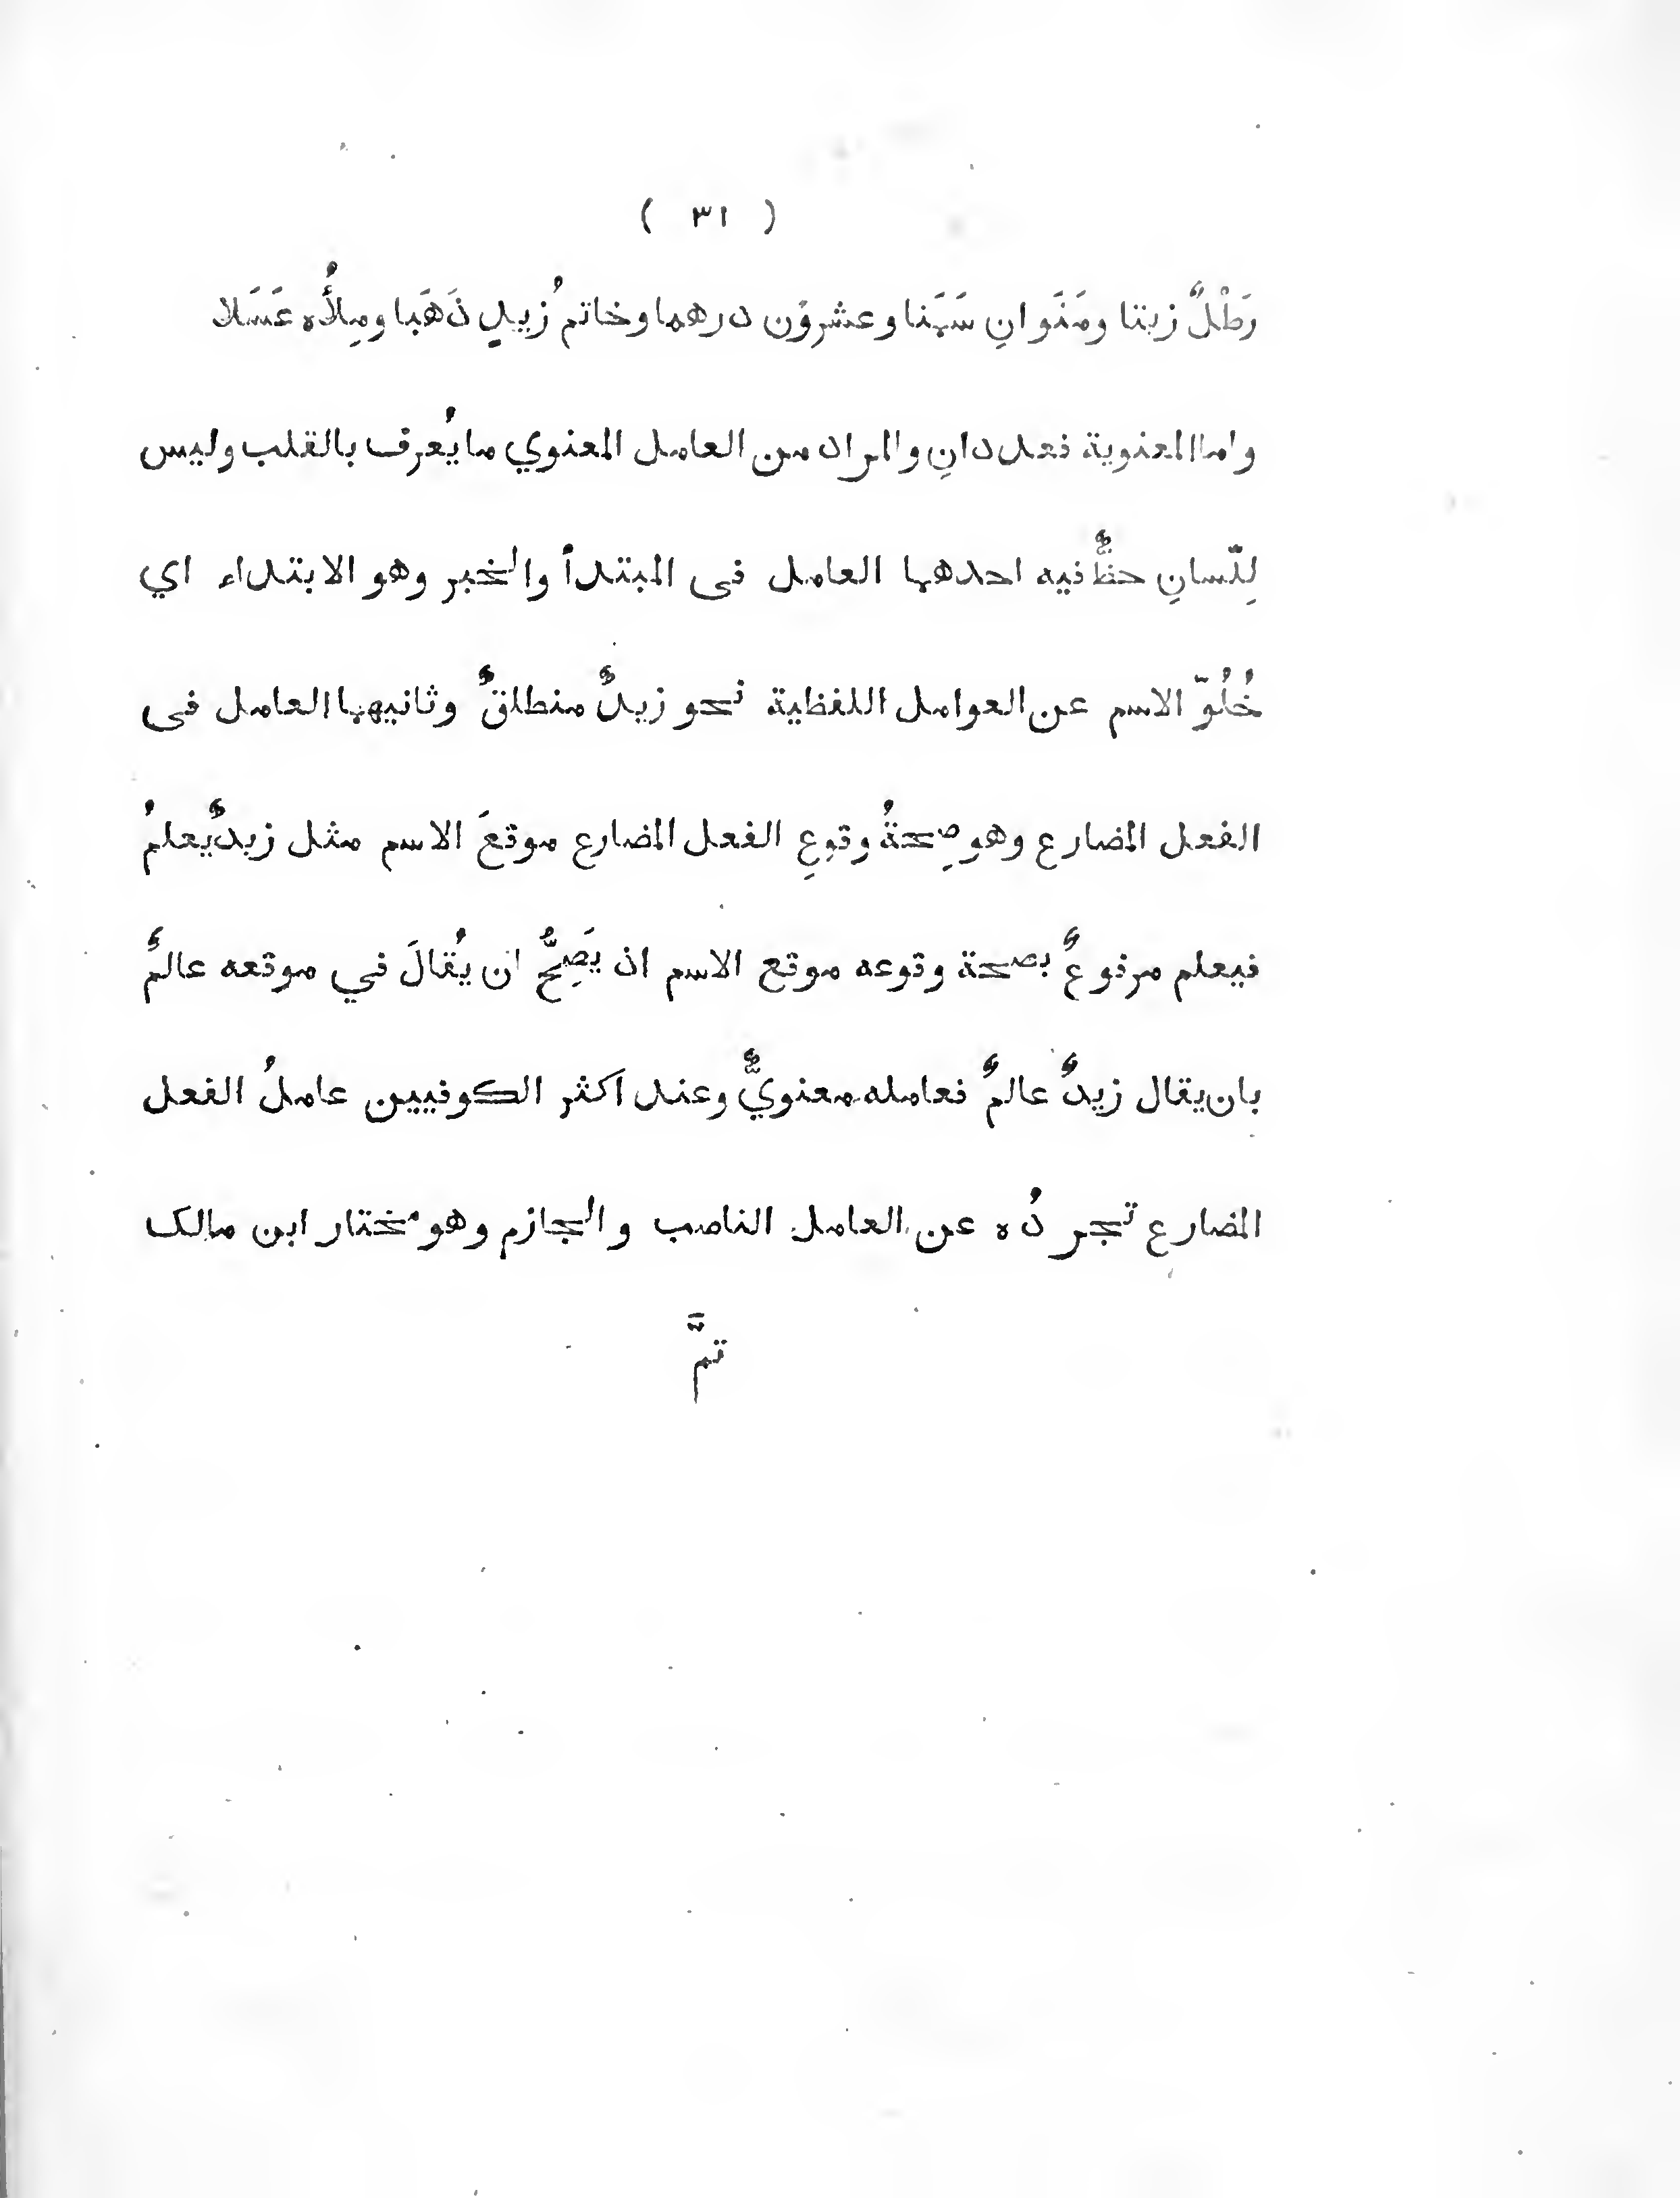 ( ٣١ )
رَطْلٌ زيتا ومَنَوانِ سَمَنا وعشروْن درهما وخاتمُ زيدٍ ذَهَبا ومِلأُه عَسَلا
واما المعنوية فعددانِ والمراد من العامل المعنوي ما يُعرف بالقلب وليس
لِلّسانِ حظٌّ فيه احدهما العامل فى المبتدأ والخبر وهو الابتداء اي
خُلُوّ الاسم عن العوامل اللفظية نحو زيدٌ منطلقٌ وثانيهما العامل فى
الفعل المضارع وهو صِحةُ وقوعِ الفعل المضارع موقعَ الاسم مثل زيدٌ يعلمُ
فيعلم مرفوعٌ بصحة وقوعه موقع الاسم اذ يَصِحُّ ان يُقالَ في موقعه عالمٌ
بان يقال زيدٌ عالمٌ فعامله معنويٌّ وعند اكثر الكوفيين عاملُ الفعل
المضارع تجردُه عن العامل الناصب والجازم وهو مختار ابن مالك
تمَّ